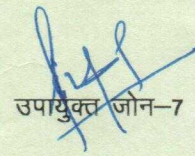 उपायुक्त जोन–7